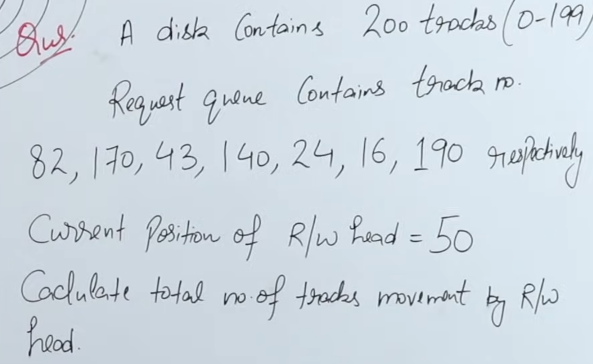 Que. A disk Contains 200 tracks (0-199)
Request queue Contains track no.
82, 170, 43, 140, 24, 16, 190 respectively
Current Position of R/W head = 50
Caclulate total no. of tracks movement by R/W
head.